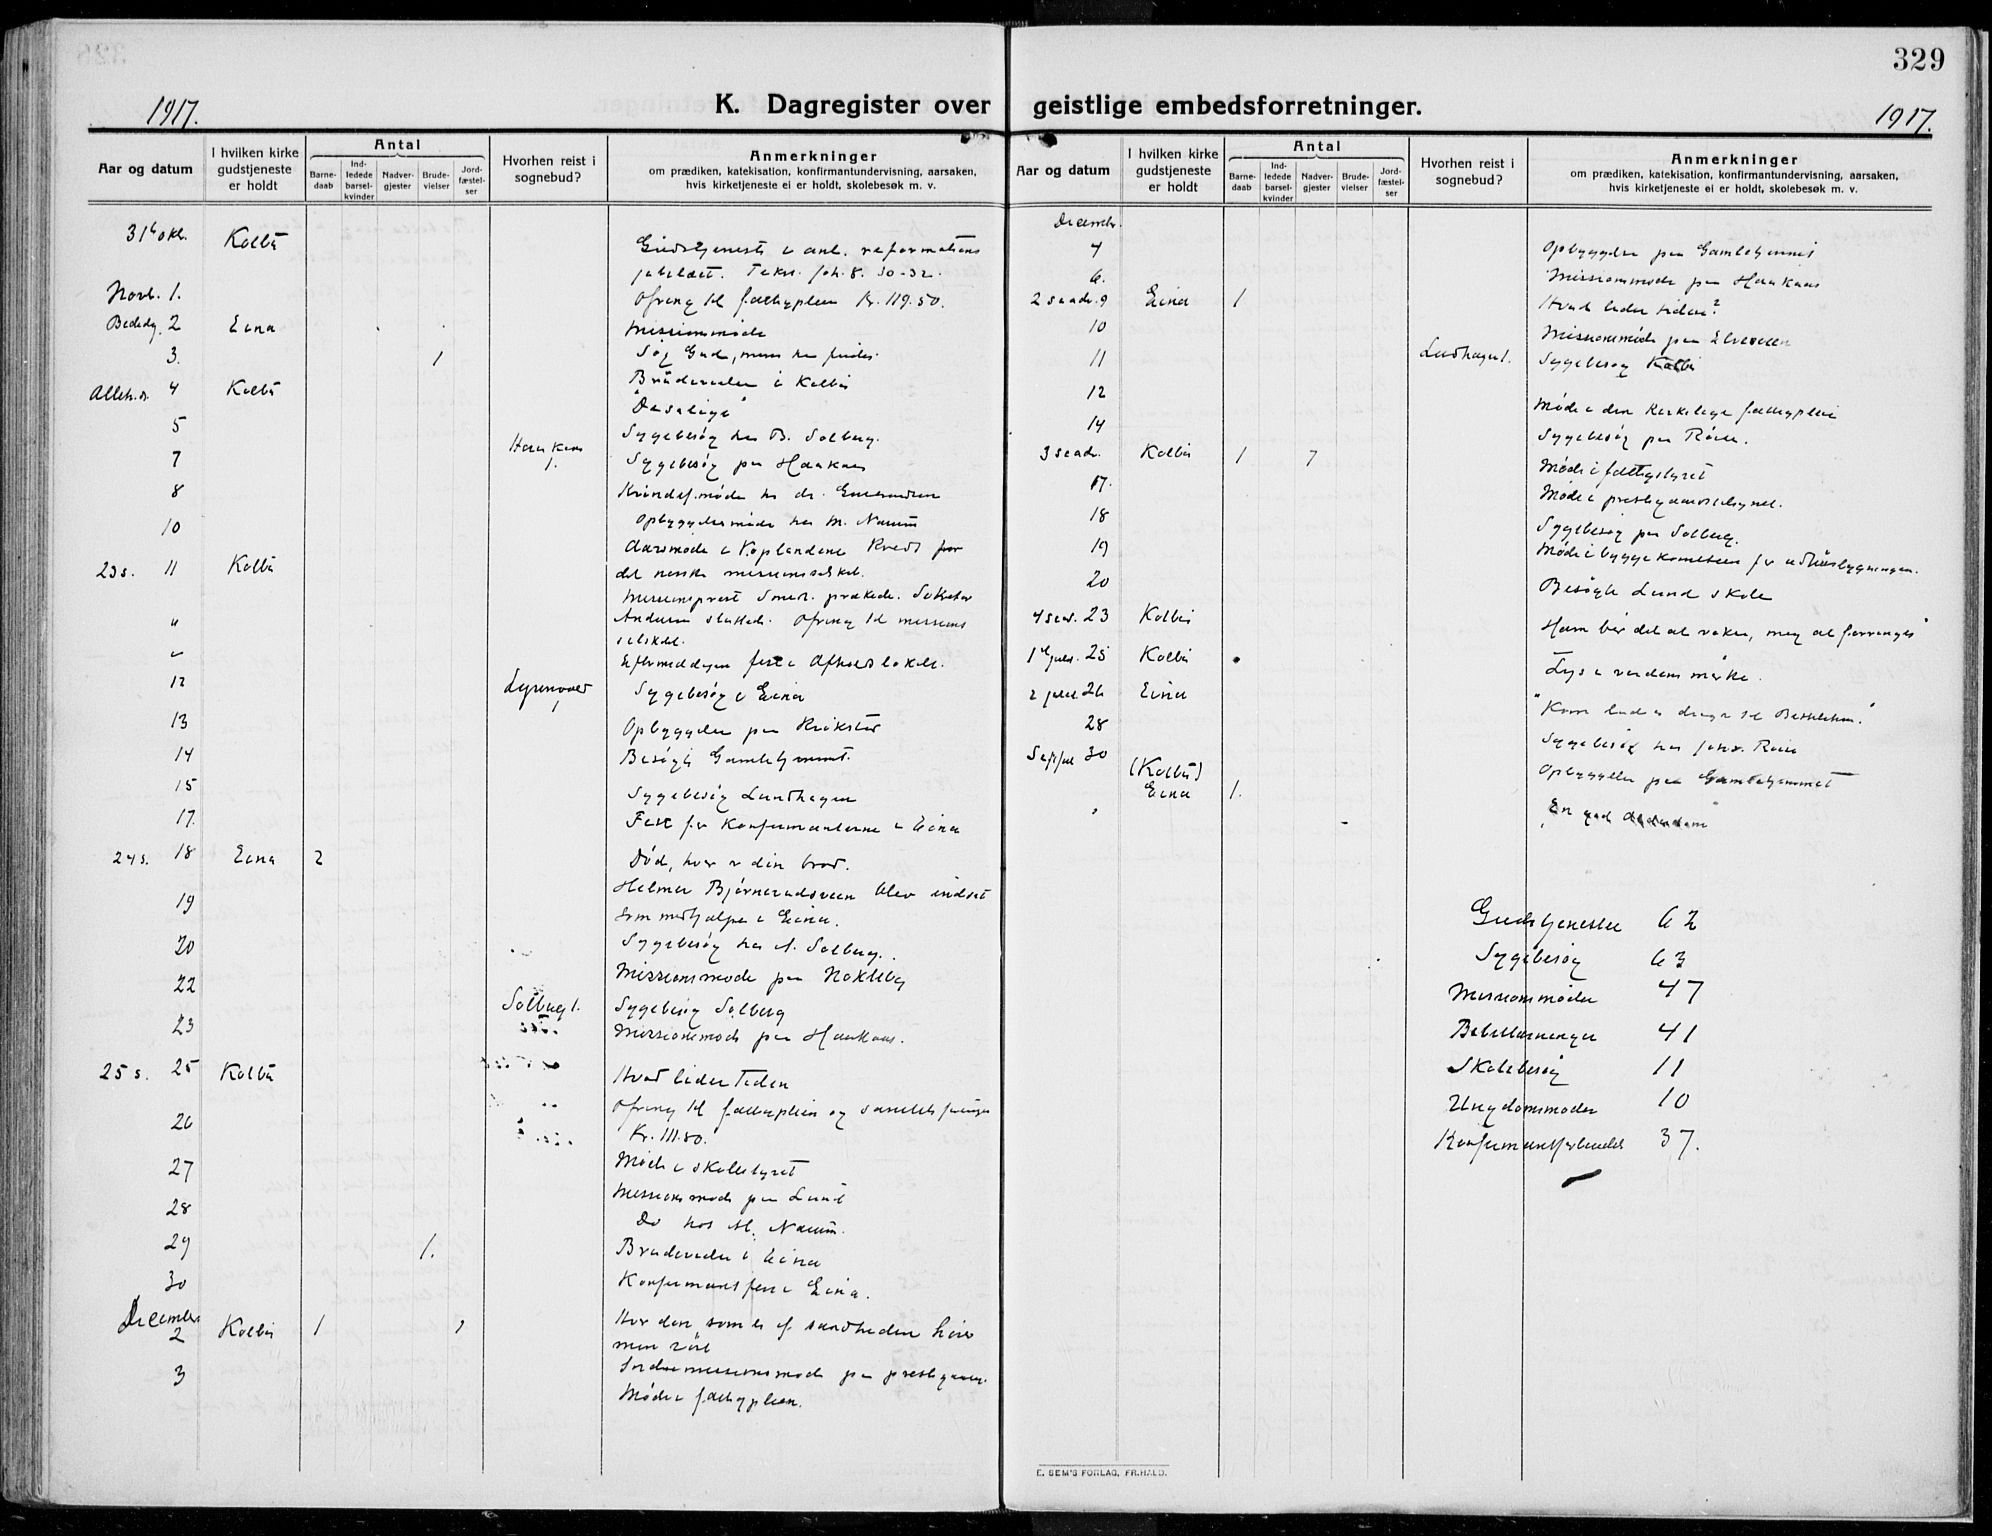 329
1917.
K. Dagregister over geistlige embedsforretninger.
1917.
Aar og datum
I hvilken kirke gudstjeneste er holdt
Antal
Barne-daab
Ind-ledede barsel-kvinder
Nadver-gjester
Brude-vielser
Jord-fæstel-ser
Hvorhen reist i sognebud?
Anmerkninger
om prædiken, katekisation, konfirmantundervisning, aarsaken, hvis kirketjeneste ei er holdt, skolebesøk m. v.
31te okt. Kolbu Gudstjeneste i anl. reformations
jubilæet. Tekst Joh. 8. 30-32.
Novb. 1. Ofring til fattigpleien Kr. 119.50.
Bededg. 2 Eina Missionsmøde
3. 1 Søg Gud, mens han findes.
Alleh. s. 4 Kolbu Brudevielse i Kolbu
"De salige"
5 Sygebesøg hos B. Solberg.
7 Haakaas 1. Sygebesøg paa Haakaas
8 Kvindef. møde hos dr.
10 Opbyggelsesmøde hos M. Narum
Aarsmøde i Oplandene Kreds for
23 s. 11 Kolbu det norske missionsselskab.
Missionsprest prækede. Sekretær
" Andersen sluttede. Ofring til missions
selskab.
" Eftermiddagen fest i Afholdslokalet.
12 1 Sygebesøg i Eina
13 Opbyggelse paa Rukstad
14 Besøgt Gamlehjemmet.
15 Sygebesøg Lundhagen
17. Fest for Konfirmanterne i Eina
24 s. 18 Eina 2 Død, hvor er din brod.
Helmer Bjørnerudsveen blev indsat
19 som medhjælper i Eina.
20 Sygebesøg hos A. Solberg.
22 Missionsmøde paa Nøkleby
Solberg 1. Sygebesøg Solberg
23 Missionsmøde paa Haakaas.
25 s. 25 Kolbu Hvad lider Tiden
Ofring til fattigpleien og
26 Kr. 111.80.
27 Møde i skolestyret
Missionsmøde paa Lund
28 Do hos M. Narum.
29 1. Brudevielse i Eina
30 Konfirmantfest i Eina.
December
2 Kolbu 1 1 Hver den som er af sandheden hører
min røst
3 paa prestegaarden.
Møde i fattigpleien.
Aar og datum
I hvilken kirke gudstjeneste er holdt
Antal
Barne-daab
Ind-ledede barsel-kvinder
Nadver-gjester
Brude-vielser
Jord-fæstel-ser
Hvorhen reist i sognebud?
Anmerkninger
om prædiken, katekisation, konfirmantundervisning, aarsaken, hvis kirketjeneste ei er holdt, skolebesøk m. v.
Decemb.
4 Opbyggelse paa Gamlehjemmet
6. Missionsmøde paa Haakaas
2 s. adv. 9 Eina 1 Hvad lider tiden?
10 Missionsmøde paa Elveveen
11 Lundhagen 1. Sygebesøg Kolbu
12 Møde i den kirkelige fattigpleie
14 Sygebesøg paa Røise.
3 s. adv. Kolbu 1 7 Møde i fattigstyret
17. Møde i prestegaardstilsynet.
18 Sygebesøg paa Solberg.
19 Møde i byggekomiteen for udhusbygningen.
20 Besøgte Lund skole
4 s. adv. 23 Kolbu Ham bør det at vokse, meg at forringes"
1ste juled. 25 Kolbu Lys i verdens mørke.
2 juled. 26 Eina "Kom lad os drage til Bethlehem."
28 Sygebesøg hos Johs. Røise
S e/jul 30 (Kolbu) Opbyggelse paa Gamlehjemmet
Eina 1. En god
Gudstjenester 62
Sygebesøg 63
Missionsmøder 47
Bibellæsninger 41
Skolebesøg 11
Ungdomsmøder 10
37.
E. SEM'S FORLAG, FR.HALD.